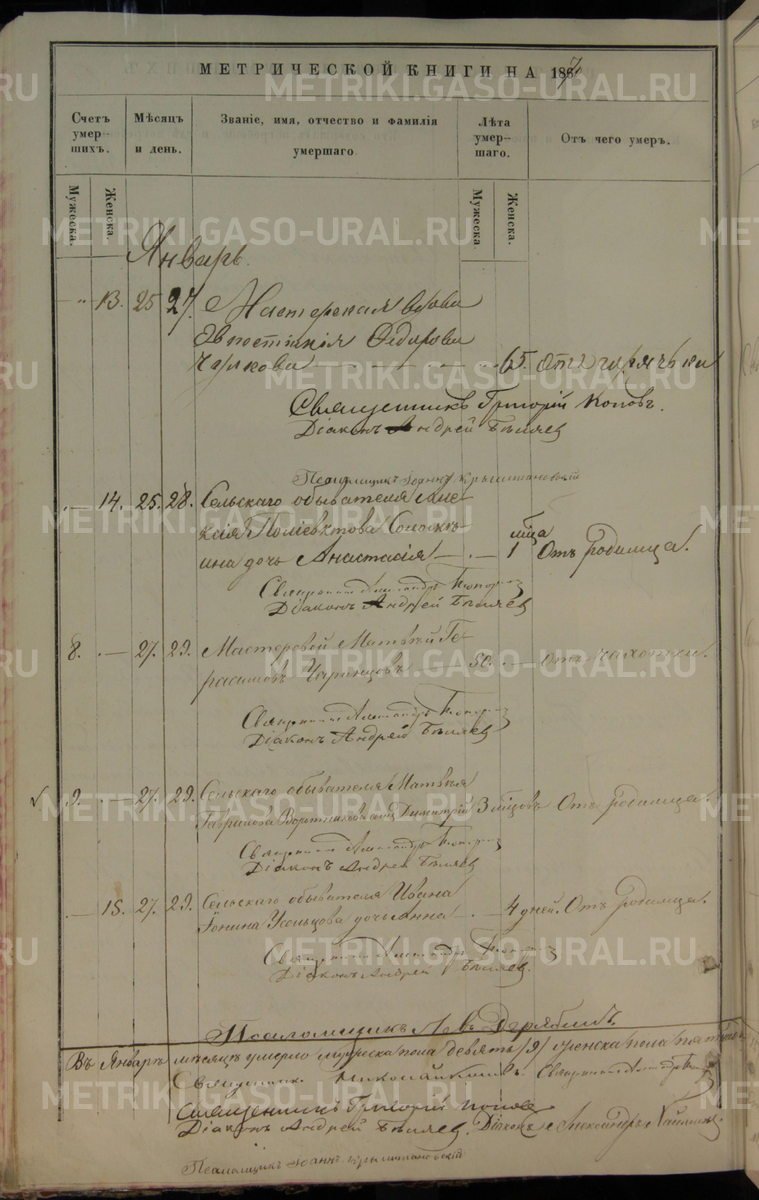 МЕТРИЧЕСКОЙ КНИГИ НА 1867
Счетъ умер-шихъ.
Мѣсяцъ и день.
Званіе, имя, отчество и фамилія умершаго.
Лѣта умер-шаго.
Отъ чего умеръ.
Мужеска.
Женска.
Мужеска
Женска.
Январь.
" 13. 25 27. Мастерская вдова
Евпостинія Ѳедорова
65. отъ горячки
Священникъ Григорій Поповъ.
Діаконъ Андрей Бѣляев
Псаломщикъ Іоаннъ
14. 25. 28. Сельскаго обывателя Але-
ксія Поліевктова
мца
ина дочь Анастасія 1 Отъ родимца.
Священникъ Александръ
Діаконъ Андрей Бѣляев
8. 27. 29. Мастеровой Матвѣй Ге-
расимовъ 50. отъ чахотки.
Священникъ Александръ
Діаконъ Андрей Бѣляев
9. 27. 29. Сельскаго обывателя Матвѣя
Гаврилова сынъ Димитрій 3 мцовъ Отъ родимца.
Священникъ Александръ
Діаконъ Андрей Бѣляев
15. 27. 29. Сельскаго обывателя Ивана
Усольцова дочь Анна 4 дней. Отъ родимца.
Священникъ Александръ
Діаконъ Андрей Бѣляев.
Псаломщикъ Левъ Дерябинъ
Въ Январѣ мѣсяцѣ умерло мужеска пола девять /9/ женска пола
Священникъ Николай Священникъ Александръ
Священникъ Григорій Попов
Діаконъ Андрей Бѣляев. Діаконъ Александръ
Псаломщикъ Іоаннъ
METRIKI.GASO-URAL.RU